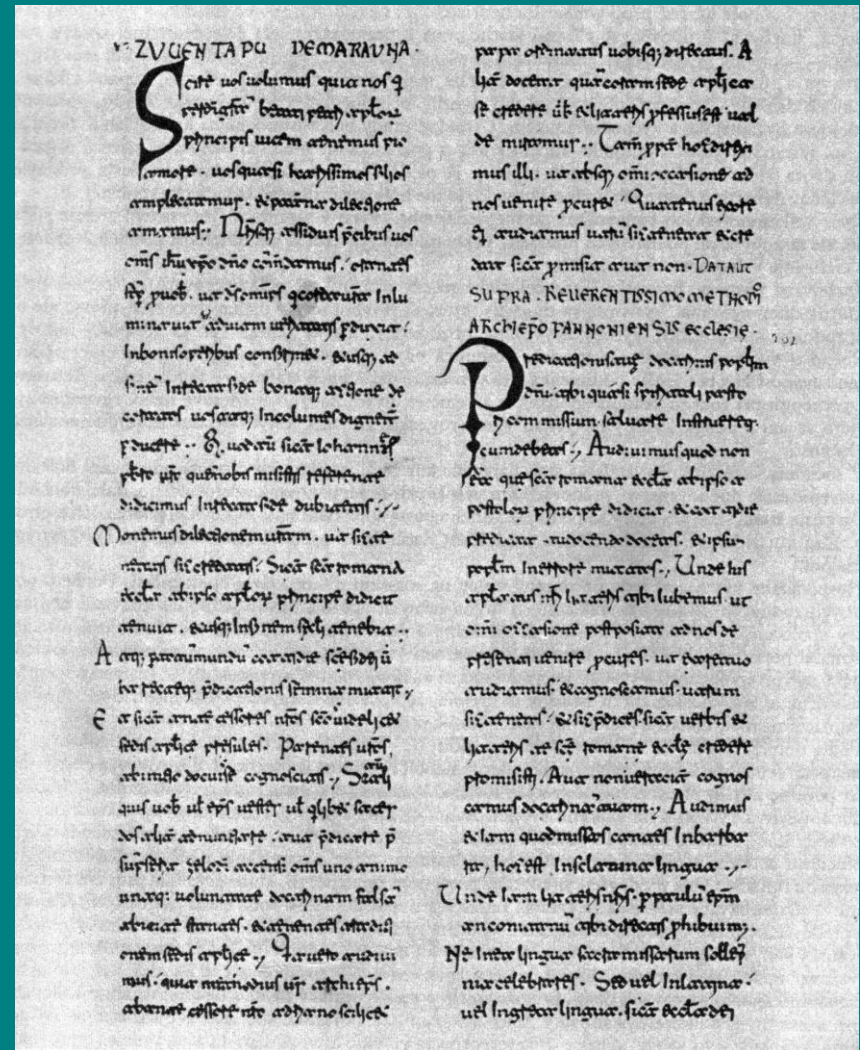 ZVUENTAPU DEMARAVNA.
Scire uos uolumus quia nos q̄
per di gr̄a beati petri aplor̄
principis uicem tenemus pio
amore. uos quasi karissimos filios
amplectimur. et paterna dilectione
amamus. Nr̄isq; assiduis p̄cibus uos
om̄s ih̄u xp̄o dn̄o com̄damus. orantes
sēp ꝓ uob̄. ut d̄s omīps q corda ur̄a inlu
minauit adiuam ueritatis ꝑduxit.
Inbonis operibus confirmet. et usq; ad
finē Inrecta fide bonaq; actione de
coratos uos atq; Incolumes dignet̄
ꝑducere. Et uerū sicut Iohannes
pb̄r ur̄ quē nobis misistis referente
didicimus Inrecta fide dubitetis.
Monemus dilectionem uēram. ut sic te
neatis sic credatis. Sicut sc̄a romana
eccl̄a ab ipso aplor̄ principe didicit
tenuit. et usq; In finem sc̄li tenebit.
Atq; ꝑ totū mundū cottidie sc̄e fidei ū
ba recteq; p̄dicationis semina mittit.
Et sicut antecessores nr̄os sc̄e uidelicet
sedis aplice presules. Parentes ur̄os,
ab initio docuisse cognoscitis. Si aūt ali
quis uob̄ ul̄ ep̄s uester ul̄ qlibet sacer
dos alit̄ adnuntiare. aut p̄dicare p̄
sūpserit zelo dī accensi om̄s uno animo
unaq; uoluntate doctrinam falsā
abicite stantes. et tenentes traditi
onem sedis aplice. Quia uero audiui
mus. quia methodius ur̄ archieps.
ab antecessore nr̄o adriano scilicet
papa ordinatus uobisq; directus. A
lit̄ docetur quā coram sede aplica
se credere ūb et litteris professus est ual
de miramur. Tam ꝓpt̄ hoc direxi
mus illi. ut absq; om̄i occasione ad
nos uenire ꝓcuret. Quatenus ex ore
eī audiamus utrū sic teneat et cre
dat sicut promisit aut non. DATA UT
SUPRA. REUERENTISSIMO METHOD
ARCHIEPO PANNONIENSIS ECCLESIE.
201
Predicationis tue doctrinis popl̄m
dn̄i tibi quasi spiritali pasto
ri commissum. saluare Instruereq;
cum debeas. Audiuimus quod non
ea que sc̄a romana eccl̄a ab ipso a
postolor̄ principe didicit. et cottidie
predicat. tu docendo doceas. et ipsum
popl̄m In errore mittas. Unde his
aplatus nr̄i litteris tibi iubemus. ut
om̄i occasione postposita ad nos de
presenti uenire ꝓcures. ut ex ore tuo
audiamus. et cognoscamus. utrum
sic teneas. et sic p̄dices. sicut uerbis et
litteris te sc̄e romane eccl̄e credere
promisisti. Aut non ueraciter cognos
camus doctrinā tuam. Audimus
etiam quod missas cantes In barba
ra, hoc est In sclauina lingua.
Unde Iam litteris nr̄is. ꝑ paulū ep̄m
anconitanū tibi directis prohibuim;.
Ne In ea lingua sacra missarum sollēp
nia celebrares. Sed uel In latina.
uel In greca lingua. sicut eccl̄a dei